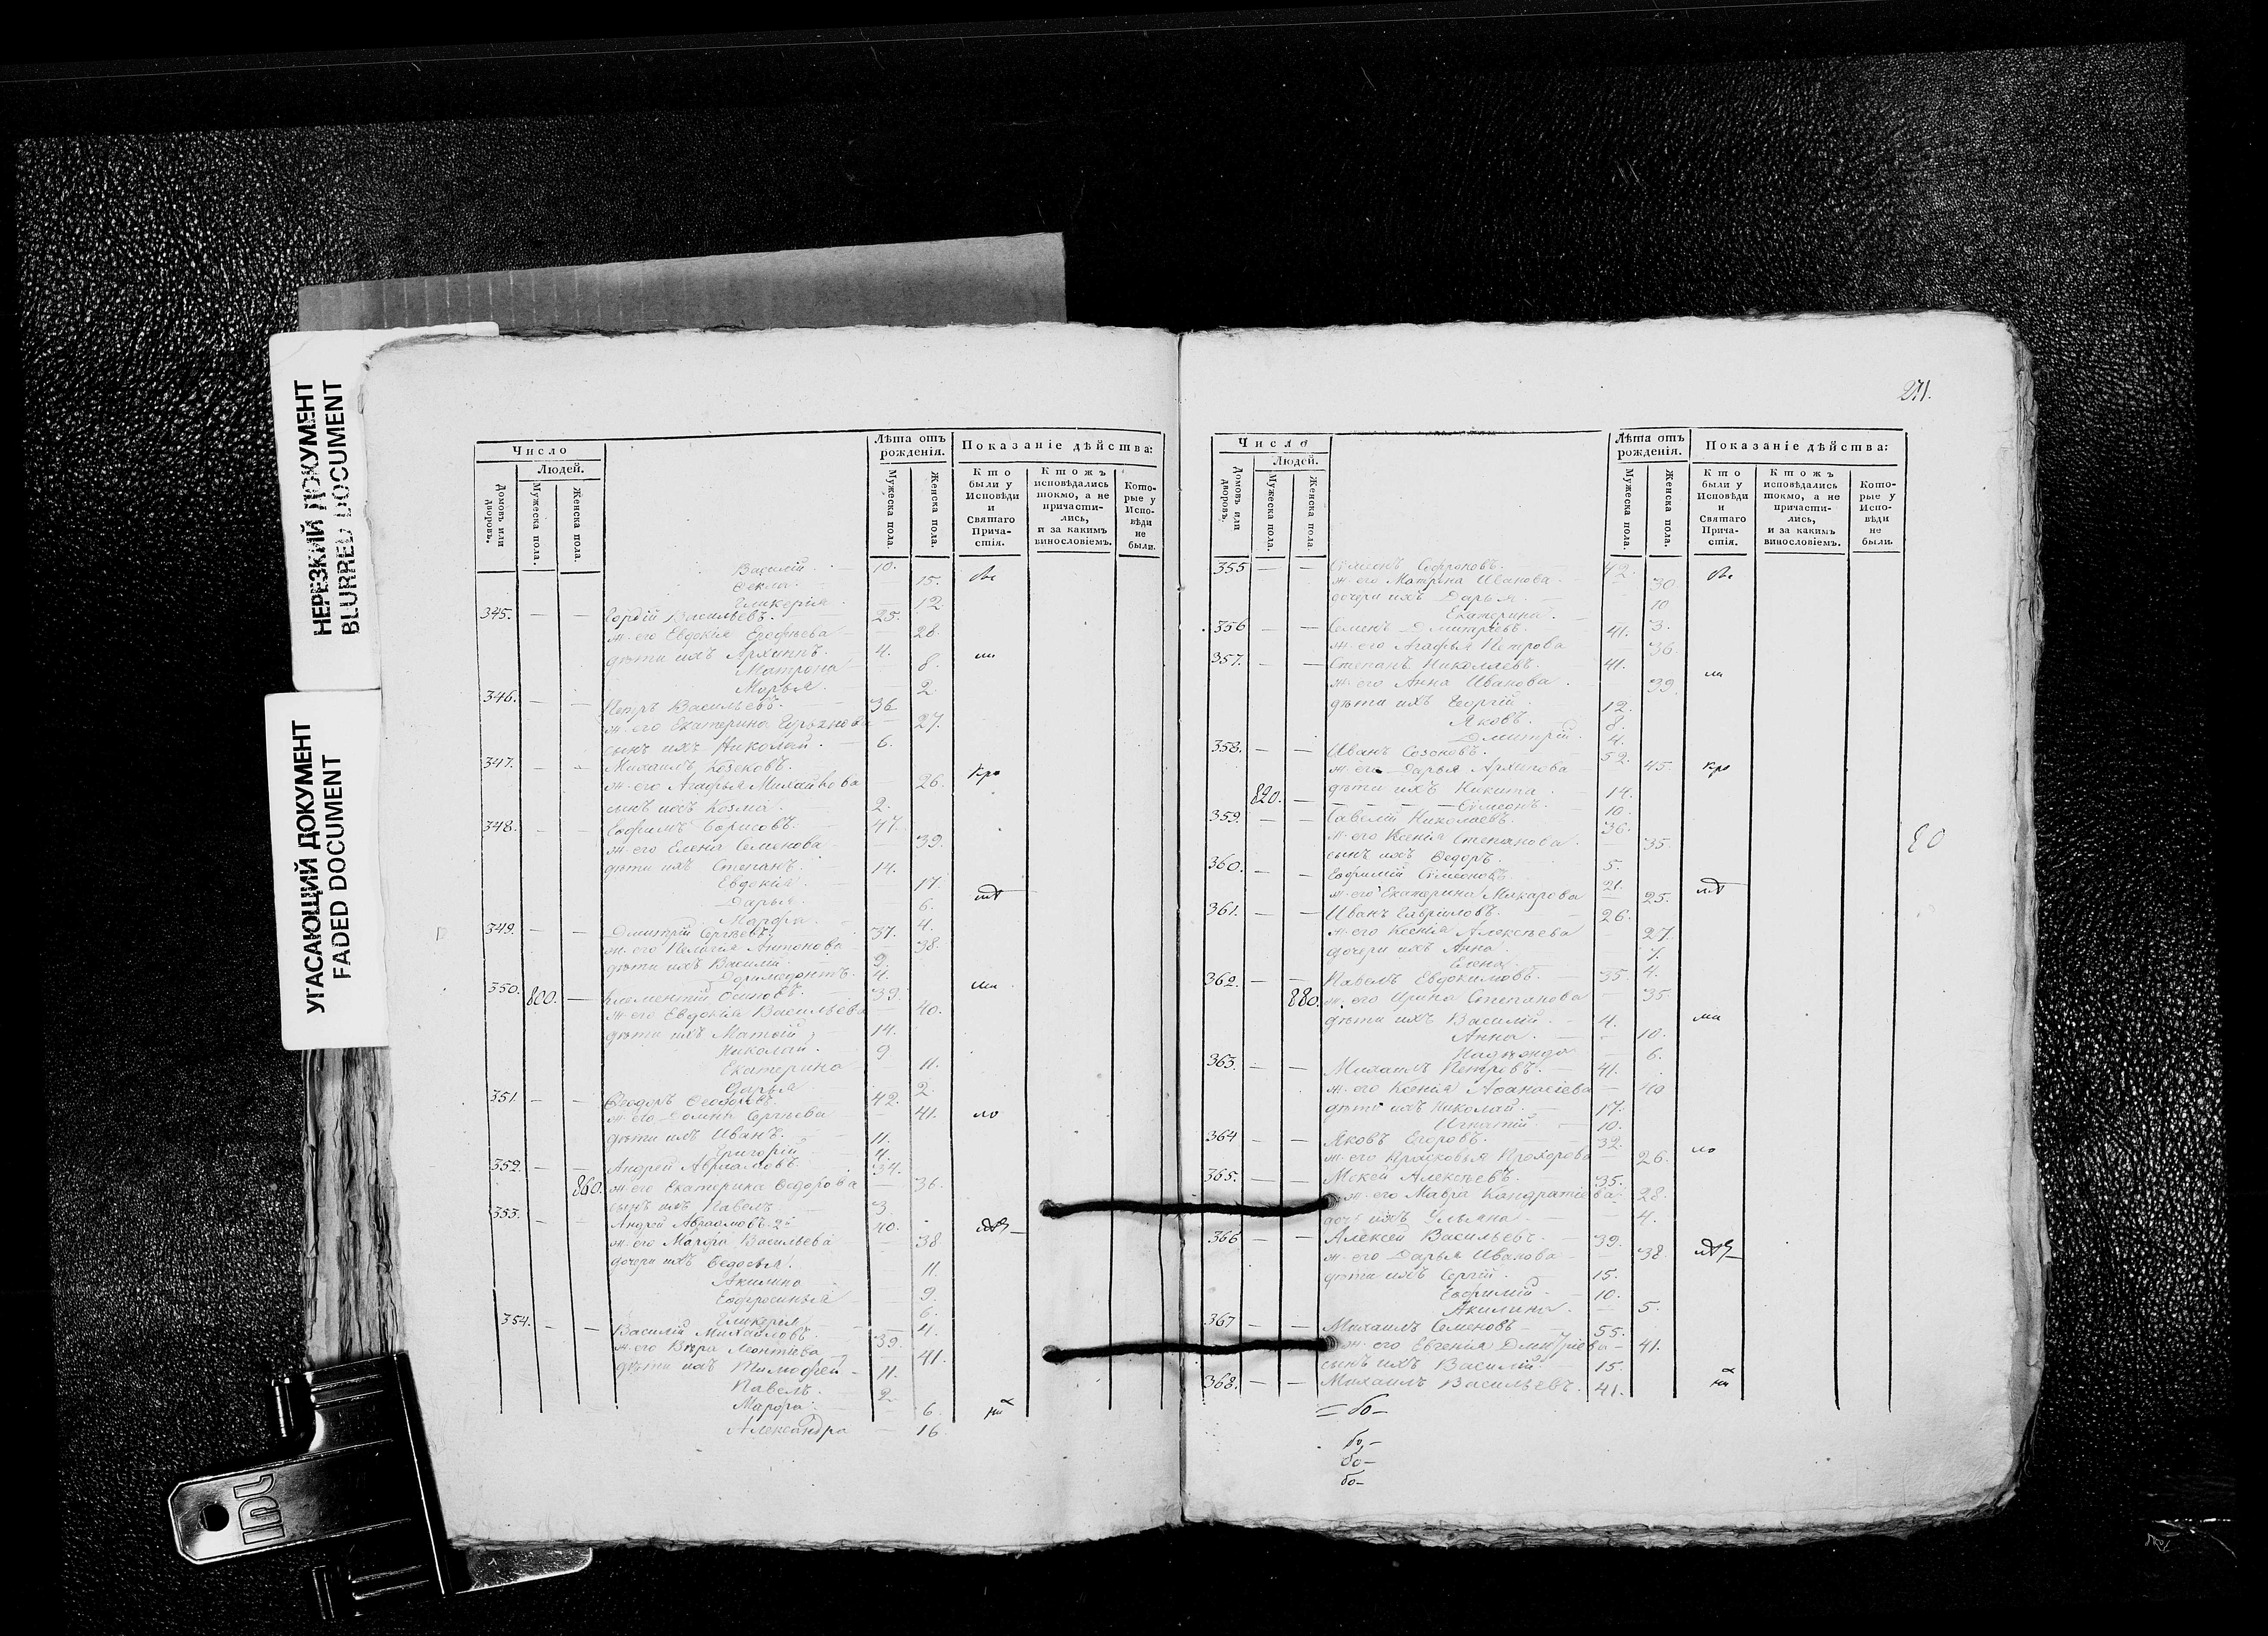 НЕРЕЗКИЙ ДОКУМЕНТ
BLURRED DOCUMENT
УГАСАЮЩИЙ ДОКУМЕНТ
FADED DOCUMENT
Число
Людей.
Домовъ или дворовъ.
Мужеска пола.
Женска пола.
Лѣта отъ рожденія.
Мужеска пола.
Женска пола.
Показаніе дѣйства:
Кто были у Исповѣди и Святаго Прича-стія.
Ктожъ исповѣдались токмо, а не причасти-лись, и за какимъ винословіемъ.
Кото-рые у Испо-вѣди не были.
Василій. 10.
Фекла. 15.
Гликерія. 12
345. — — Гордій Васильевъ. 25.
ж. его Евдокія Ерофѣева 28.
дѣти ихъ Архиппъ. 4.
Матрона 8.
Марья. 2
346. — — Петръ Васильевъ. 36
ж. его Екатерина Гурьянова 27.
сынъ ихъ Николай. 6.
347. — — Михаилъ
ж. его Агафья Михайлова 26.
сынъ ихъ Козма. 2.
348. — — Евфимъ Борисовъ. 47.
ж. его Елена Семенова 39.
дѣти ихъ Степанъ. 14.
Евдокія. 17.
Дарья. 6.
Марфа. 4.
349. — — Дмитрій Сергѣевъ. 37.
ж. его Пелагія Антонова 38.
дѣти ихъ Василій 9.
Доримедонтъ. 4.
350. 800. — Климентій Осиповъ. 39.
ж. его Евдокія Васильева 40.
дѣти ихъ Матвій 14.
Николай. 9
Екатерина 11.
Дарья 2.
351. — — Ѳеодоръ Ѳеодоровъ. 42.
ж. его Домна Сергѣева 41.
дѣти ихъ Иванъ. 11.
Григорій 4.
352. — — Андрей Авраамовъ. 34.
860. ж. его Екатерина Ѳедорова 36.
сынъ ихъ Павелъ 3.
353. — — Андрей Авраамовъ 2й 40.
ж. его Марфа Васильева 38
дочери ихъ Ѳедосья. 11.
Акилина 9.
Евфросинья 6.
Гликерія 4.
354. — — Василій Михайловъ. 39.
ж. его Вѣра Леонтіева 41.
дѣти ихъ Тимофей 11.
Павелъ. 2
Марфа. 6.
Александра 16
271.
Число
Людей.
Домовъ или дворовъ.
Мужеска пола.
Женска пола.
Лѣта отъ рожденія.
Мужеска пола.
Женска пола.
Показаніе дѣйства:
Кто были у Исповѣди и Святаго Прича-стія.
Ктожъ исповѣдались токмо, а не причасти-лись, и за какимъ винословіемъ.
Кото-рые у Испо-вѣди не были.
355 — — Симеонъ Софроновъ. 42.
ж. его Матрона Иванова 30
дочери ихъ Дарья. 10
Екатерина. 3.
356 — — Семенъ Дмитріевъ. 41.
ж. его Агафья Петрова 36.
357. — — Степанъ Николаевъ. 41.
ж. его Анна Иванова. 39
дѣти ихъ Георгій. 12.
Яковъ. 8.
Дмитрій. 4.
358. — — Иванъ Созоновъ. 52.
ж. его Дарья Архипова 45.
дѣти ихъ Никита 14.
820. — Симеонъ. 10.
359. — — Савелій Николаевъ. 36.
ж. его Ксенія Степанова. 35.
сынъ ихъ Ѳедоръ. 5.
360. — — Евфимій Симеоновъ. 21.
ж. его Екатерина Макарова 25.
361. — — Иванъ Гавріиловъ. 26.
ж. его Ксенія Алексѣева 27.
дочери ихъ Анна. 7.
Елена. 4.
362. — — Павелъ Евдокимовъ. 35.
880. ж. его Ирина Степанова 35.
дѣти ихъ Василій. 4.
Анна. 10.
6.
363. — — Михаилъ Петровъ. 41.
ж. его Ксенія Афанасіева 40
дѣти ихъ Николай. 17.
Игнатій. 10.
364 — — Яковъ Егоровъ. 32.
ж. его Прасковья Прохорова 26.
365. — — Мокей Алексѣевъ. 35.
ж. его Мавра Кондратіева 28.
дочь ихъ Ульяна. 4.
366 — — Алексѣй Васильевъ. 39.
ж. его Дарья Иванова 38.
дѣти ихъ Сергій. 15.
Евфимій. 10.
Акилина. 5.
367 — — Михаилъ Семеновъ 55.
ж. его Евгенія Дмитріева 41.
сынъ ихъ Василій. 15.
368. — — Михаилъ Васильевъ. 41.